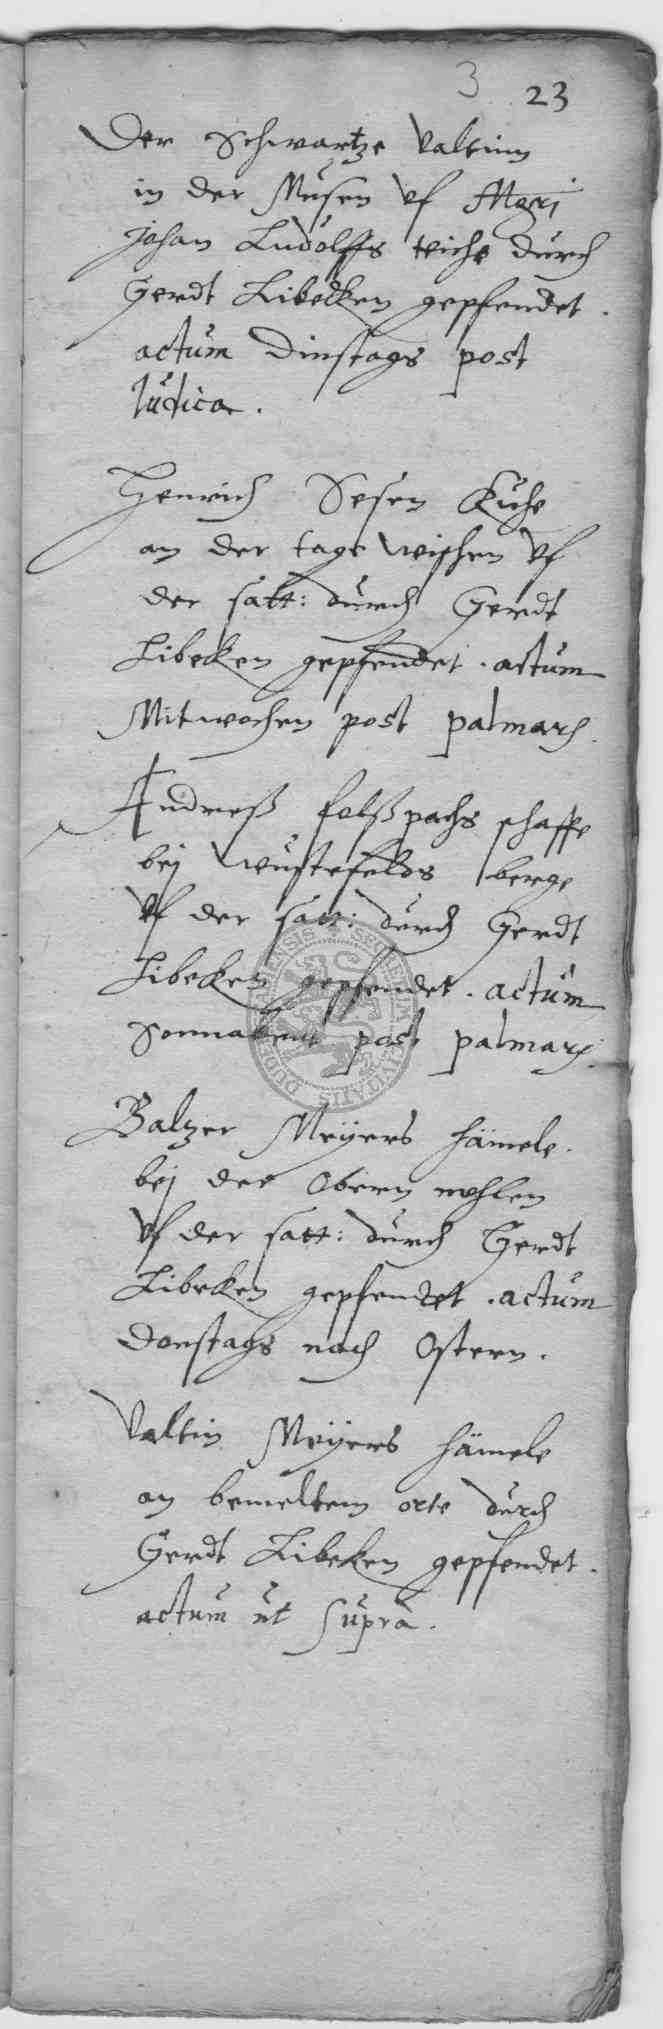 3 23
Der Schwartze Valtinn
in der Musen vf Mgri
Johan Ludolffs teiche durch
Gerdt Libecken gepfendet.
actum Dinstags post
Judica.
Henrich Sesen Kuhe
an der tage wischen vf
der satt: durch Gerdt
Libecken gepfendet. actum
Mitwochen post palmarum.
Andreß felßpachs schaffe
bej Wustefelds berge
vf der satt: durch Gerdt
Libecken gepfendet. actum
Sonnabent post palmarum.
Baltzer Meyers hämele.
bej der Obern mohlen
vf der satt: durch Gerdt
Libecken gepfendet. actum
Donstags nach Ostern.
Valtin Meyers hämele
an bemeltem orte durch
Gerdt Libecken gepfendet.
actum ut supra.